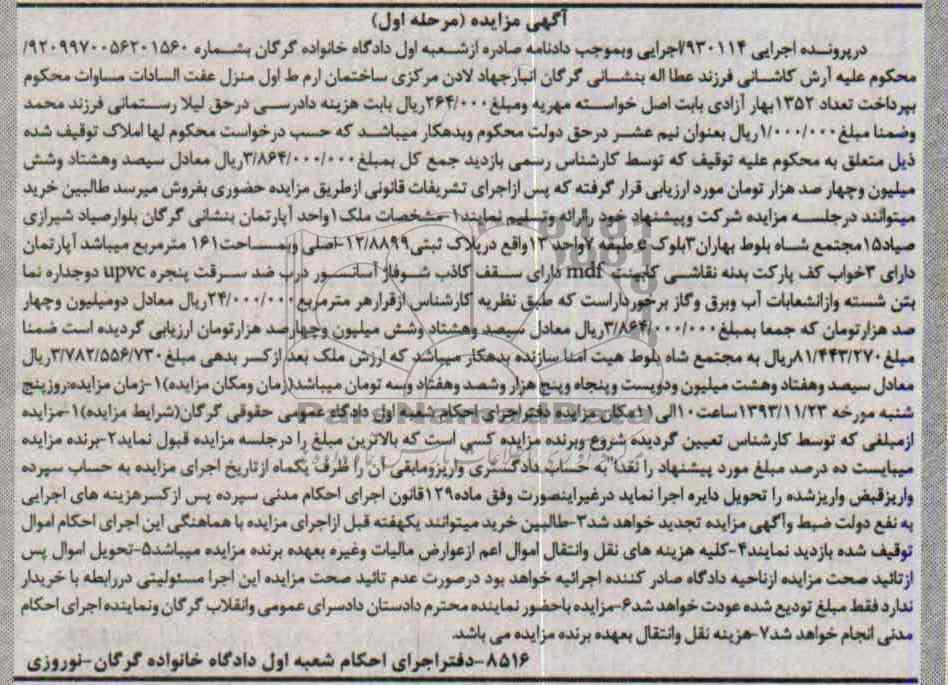 آگهی مزایده (مرحله اول)
درپرونده اجرایی ۹۳۰۱۱۴/اجرایی وبموجب دادنامه صادره ازشعبه اول دادگاه خانواده گرگان بشماره ۹۲۰۹۹۷۰۰۵۶۲۰۱۵۶۰/
محکوم علیه آرش کاشانی فرزند عطا اله بنشانی گرگان انبارجهاد لادن مرکزی ساختمان ارم ط اول منزل عفت السادات مساوات محکوم
بپرداخت تعداد ۱۳۵۲بهار آزادی بابت اصل خواسته مهریه ومبلغ۲۶۴/۰۰۰ریال بابت هزینه دادرسی درحق لیلا رستمانی فرزند محمد
وضمنا مبلغ۱/۰۰۰/۰۰۰ریال بعنوان نیم عشر درحق دولت محکوم وبدهکار میباشد که حسب درخواست محکوم لها املاک توقیف شده
ذیل متعلق به محکوم علیه توقیف که توسط کارشناس رسمی بازدید جمع کل بمبلغ۳/۸۶۴/۰۰۰/۰۰۰ریال معادل سیصد وهشتاد وشش
میلیون وچهار صد هزار تومان مورد ارزیابی قرار گرفته که پس ازاجرای تشریفات قانونی ازطریق مزایده حضوری بفروش میرسد طالبین خرید
میتوانند درجلسه مزایده شرکت وپیشنهاد خود راارائه وتسلیم نمایند۱-مشخصات ملک۱واحد آپارتمان بنشانی گرگان بلوارصیاد شیرازی
صیاد۱۵مجتمع شاه بلوط بهاران۳بلوک e طبقه ۷واحد ۱۲واقع درپلاک ثبتی۱۲/۸۸۹۹-اصلی وبمساحت۱۶۱ مترمربع میباشد آپارتمان
دارای ۳خواب کف پارکت بدنه نقاشی کابینت mdf دارای سقف کاذب شوفاژ آسانسور درب ضد سرقت پنجره upvc دوجداره نما
بتن شسته وازانشعابات آب وبرق وگاز برخورداراست که طبق نظریه کارشناس ازقرارهر مترمربع۲۴/۰۰۰/۰۰۰ریال معادل دومیلیون وچهار
صد هزارتومان که جمعا بمبلغ۳/۸۶۴/۰۰۰/۰۰۰ریال معادل سیصد وهشتاد وشش میلیون وچهارصد هزارتومان ارزیابی گردیده است ضمنا
مبلغ۸۱/۴۴۳/۲۷۰ریال به مجتمع شاه بلوط هیت امنا سازنده بدهکار میباشد که ارزش ملک بعد ازکسر بدهی مبلغ۳/۷۸۲/۵۵۶/۷۳۰ریال
معادل سیصد وهفتاد وهشت میلیون ودویست وپنجاه وپنج هزار وشصد وهفتاد وسه تومان میباشد(زمان ومکان مزایده)۱-زمان مزایده:روزپنج
شنبه مورخه ۱۳۹۳/۱۱/۲۳ساعت۱۰الی۱۱مکان مزایده دفتراجرای احکام شعبه اول دادگاه عمومی حقوقی گرگان(شرایط مزایده)۱-مزایده
ازمبلغی که توسط کارشناس تعیین گردیده شروع وبرنده مزایده کسی است که بالاترین مبلغ را درجلسه مزایده قبول نماید۲-برنده مزایده
میبایست ده درصد مبلغ مورد پیشنهاد را نقدا" به حساب دادگستری واریزومابقی آن را ظرف یکماه ازتاریخ اجرای مزایده به حساب سپرده
واریزقبض واریزشده را تحویل دایره اجرا نماید درغیراینصورت وفق ماده۱۲۹قانون اجرای احکام مدنی سپرده پس ازکسرهزینه های اجرایی
به نفع دولت ضبط وآگهی مزایده تجدید خواهد شد۳-طالبین خرید میتوانند یکهفته قبل ازاجرای مزایده با هماهنگی این اجرای احکام اموال
توقیف شده بازدید نمایند۴-کلیه هزینه های نقل وانتقال اموال اعم ازعوارض مالیات وغیره بعهده برنده مزایده میباشد۵-تحویل اموال پس
ازتائید صحت مزایده ازناحیه دادگاه صادر کننده اجرائیه خواهد بود درصورت عدم تائید صحت مزایده این اجرا مسئولیتی دررابطه با خریدار
ندارد فقط مبلغ تودیع شده عودت خواهد شد۶-مزایده باحضور نماینده محترم دادستان دادسرای عمومی وانقلاب گرگان ونماینده اجرای احکام
مدنی انجام خواهد شد۷-هزینه نقل وانتقال بعهده برنده مزایده می باشد.
۸۵۱۶-دفتراجرای احکام شعبه اول دادگاه خانواده گرگان-نوروزی
ParsNamadData